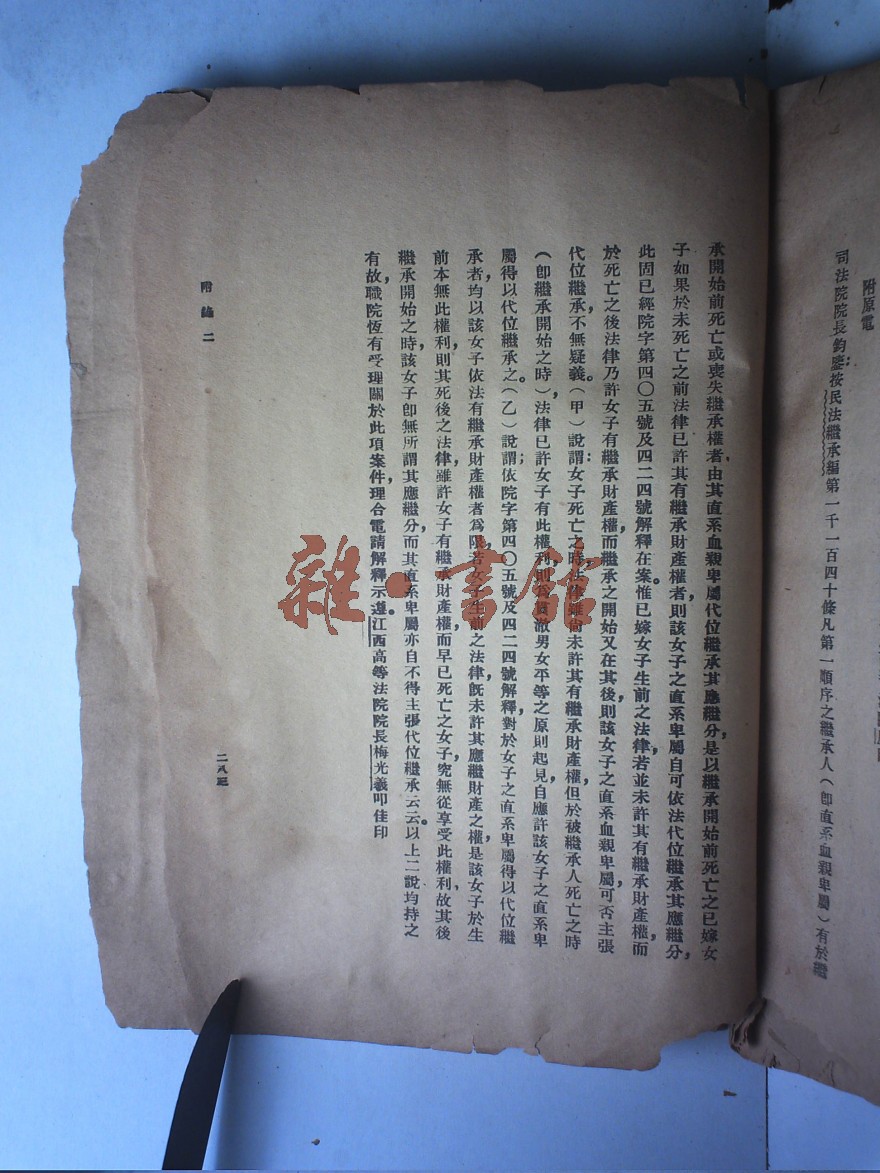 附原電
司法院院長鈞鑒按民法繼承編第一千一百四十條凡第一順序之繼承人(卽直系血親卑屬)有於繼
承開始前死亡或喪失繼承權者由其直系血親卑屬代位繼承其應繼分是以繼承開始前死亡之已嫁女
子如果於未死亡之前法律已許其有繼承財產權者則該女子之直系卑屬自可依法代位繼承其應繼分,
此固已經院字第四〇五號及四二四號解釋在案。惟已嫁女子生前之法律,若並未許其有繼承財產權,而
於死亡之後法律乃許女子有繼承財產權,而繼承之開始又在其後,則該女子之直系血親卑屬,可否主張
代位繼承,不無疑義。(甲)說謂:女子死亡之時,法律雖尙未許其有繼承財產權,但於被繼承人死亡之時
(卽繼承開始之時),法律已許女子有此權利,則爲貫澈男女平等之原則起見,自應許該女子之直系卑
屬得以代位繼承之。(乙)說謂:依院字第四〇五號及四二四號解釋,對於女子之直系卑屬得以代位繼
承者,均以該女子依法有繼承財產權者爲限,若女子生前之法律,旣未許其應繼財產之權,是該女子於生
前本無此權利,則其死後之法律,雖許女子有繼承財產權,而早已死亡之女子,究無從享受此權利,故其後
繼承開始之時,該女子卽無所謂其應繼分,而其直系卑屬亦自不得主張代位繼承云云。以上二說均持之
有故,職院恆有受理關於此項案件,理合電請解釋示遵。江西高等法院院長梅光羲叩佳印
附編二
二八三
雜·書館